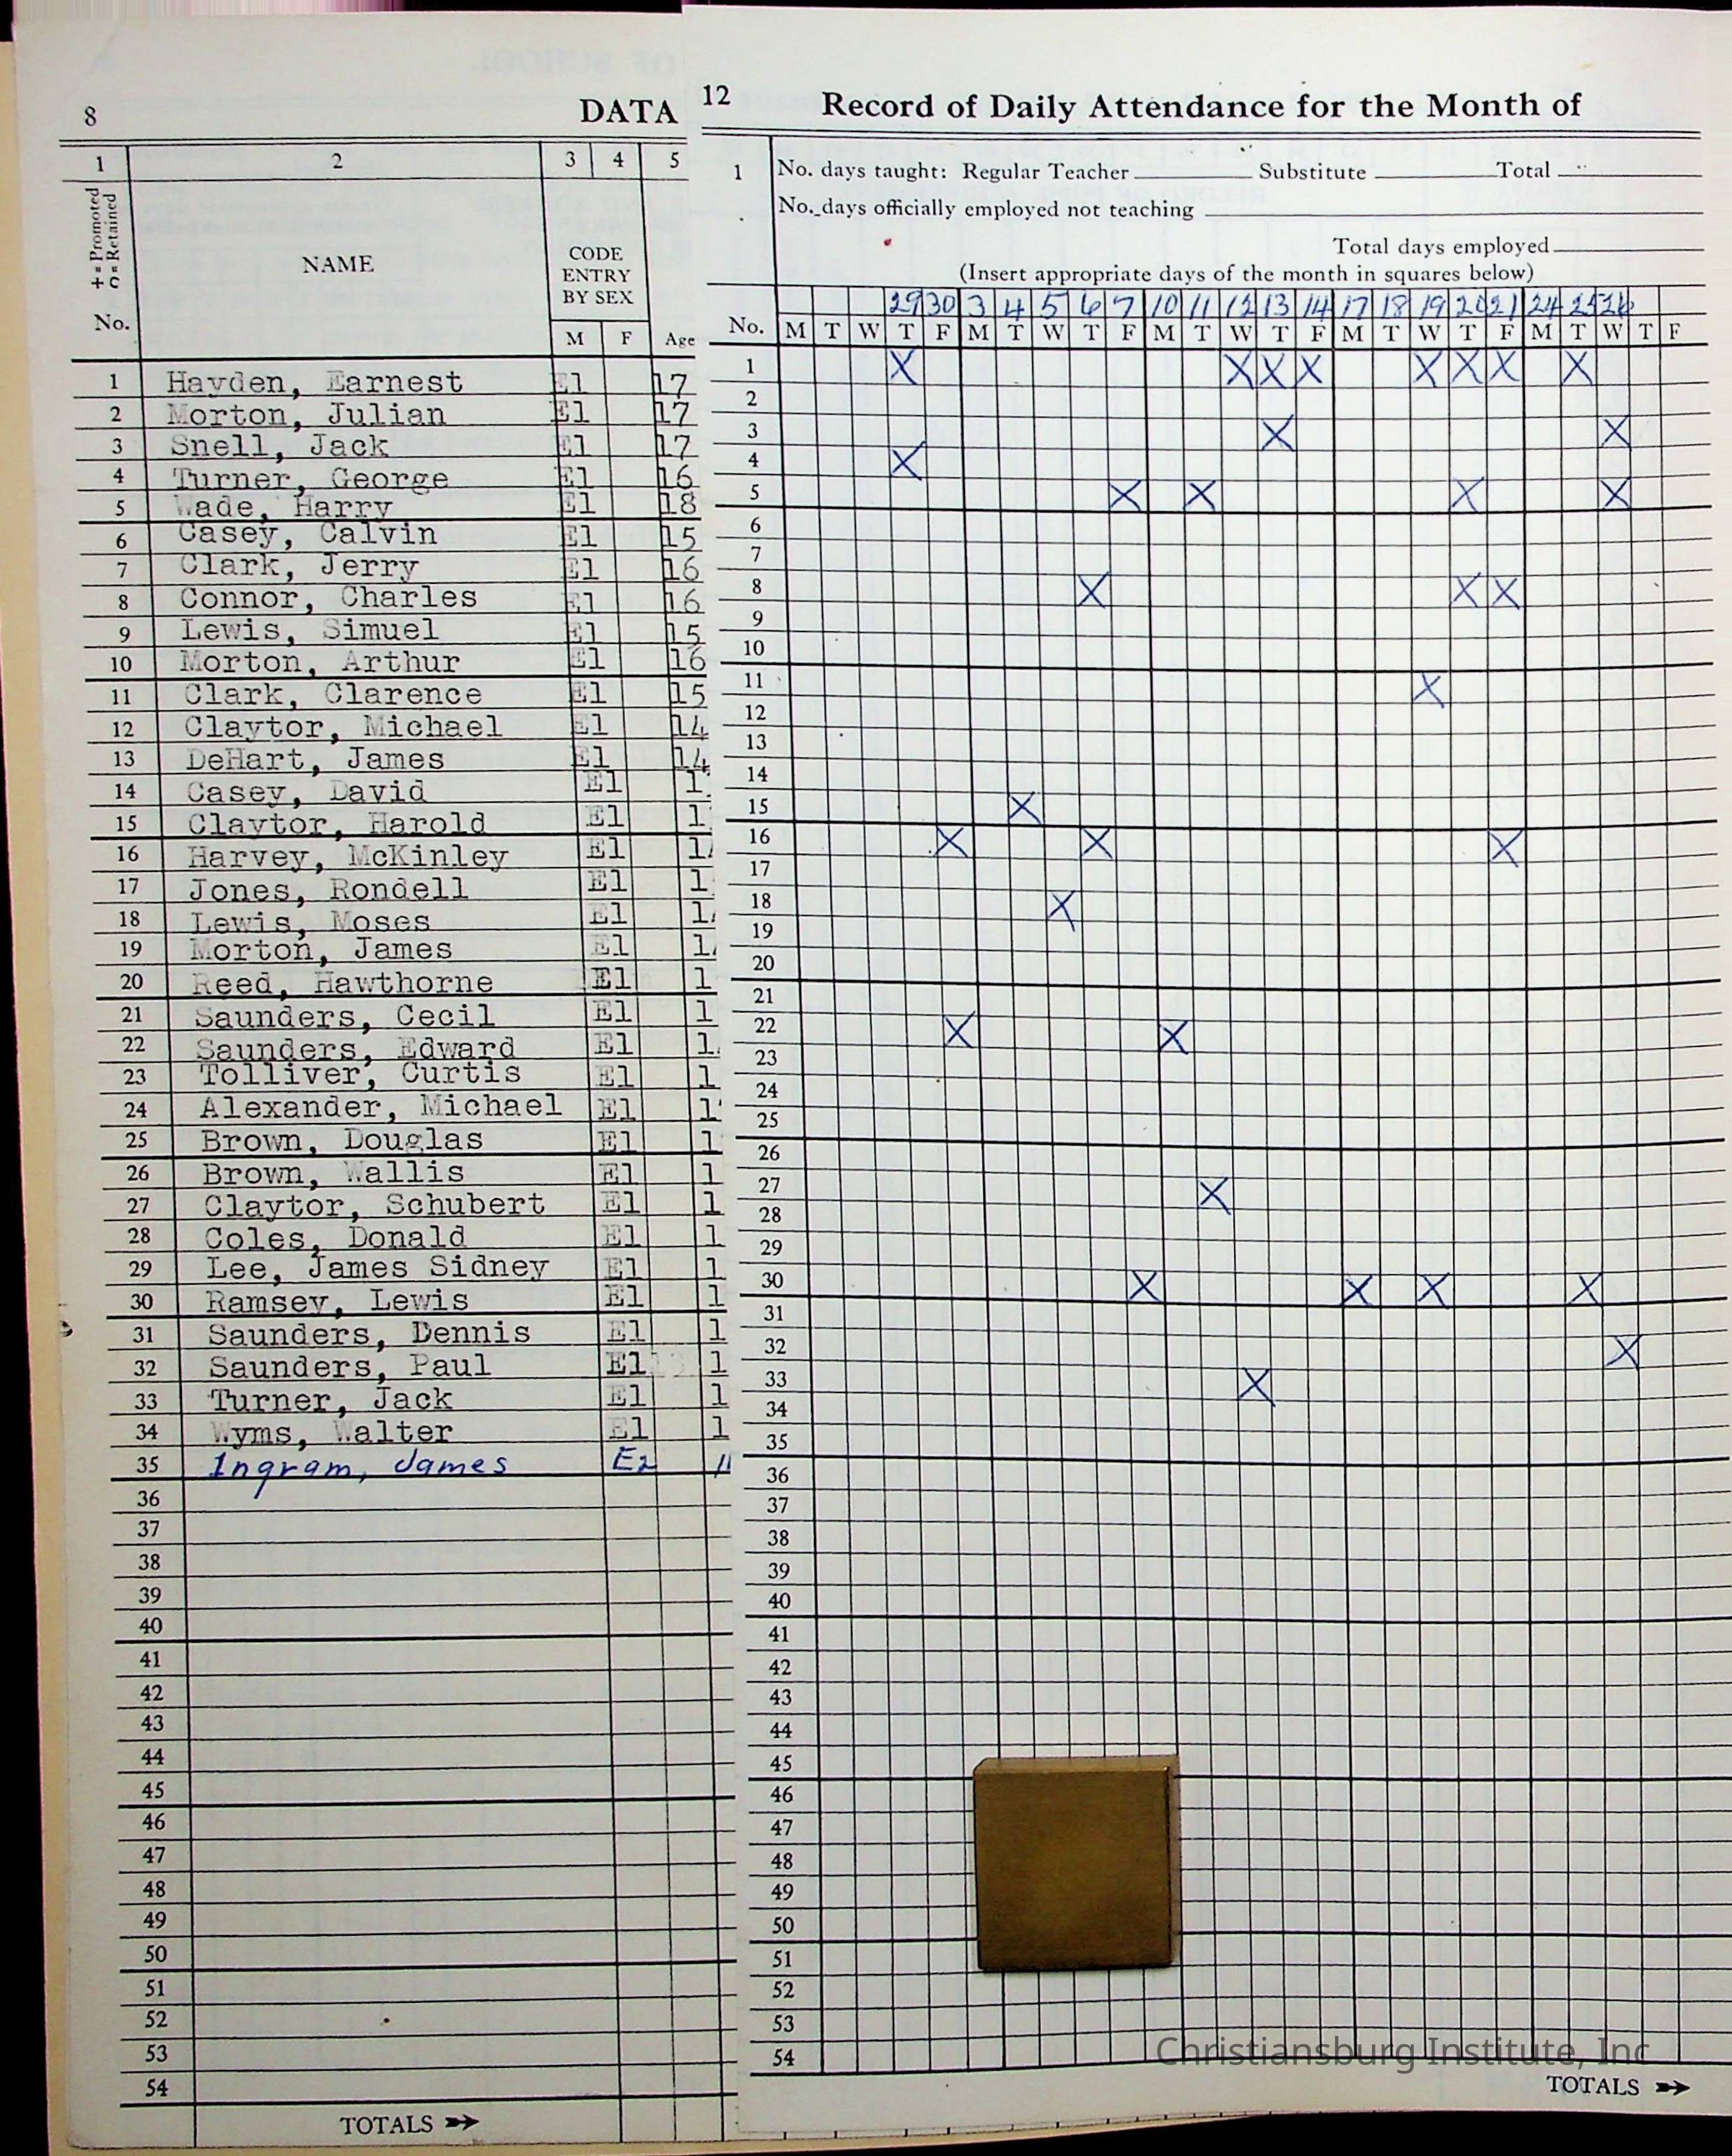 8 DATA
1 2 3 4 5
+ = Promoted
C = Retained
No.
NAME
CODE
ENTRY
BY SEX
M F Age
1 Hayden, Earnest E1 17
2 Morton, Julian E1 17
3 Snell, Jack E1 17
4 Turner, George E1 16
5 Wade, Harry E1 18
6 Casey, Calvin E1 15
7 Clark, Jerry E1 16
8 Connor, Charles E1 16
9 Lewis, Simuel E1 15
10 Morton, Arthur E1 16
11 Clark, Clarence E1 15
12 Claytor, Michael E1 14
13 DeHart, James E1 14
14 Casey, David E1 1
15 Claytor, Harold E1 1
16 Harvey, McKinley E1 1
17 Jones, Rondell E1 1
18 Lewis, Moses E1 1
19 Morton, James E1 1
20 Reed, Hawthorne E1 1
21 Saunders, Cecil E1 1
22 Saunders, Edward E1 1
23 Tolliver, Curtis E1 1
24 Alexander, Michael E1 1
25 Brown, Douglas E1 1
26 Brown, Wallis E1 1
27 Claytor, Schubert E1 1
28 Coles, Donald E1 1
29 Lee, James Sidney E1 1
30 Ramsey, Lewis E1 1
31 Saunders, Dennis E1 1
32 Saunders, Paul E1 1
33 Turner, Jack E1 1
34 Wyms, Walter E1 1
35 Ingram, James E2 11
36
37
38
39
40
41
42
43
44
45
46
47
48
49
50
51
52
53
54
TOTALS
12 Record of Daily Attendance for the Month of
1 No. days taught: Regular Teacher Substitute Total
No. days officially employed not teaching
Total days employed
(Insert appropriate days of the month in squares below)
29 30 3 4 5 6 7 10 11 12 13 14 17 18 19 20 21 24 25 26
No. M T W T F M T W T F M T W T F M T W T F M T W T F
1 X X X X X X X X
2
3 X X
4 X
5 X X X X
6
7
8 X X X
9
10
11 X
12
13
14
15 X
16 X X X
17
18 X
19
20
21
22 X X
23
24
25
26
27 X
28
29
30 X X X X
31
32 X
33 X
34
35
36
37
38
39
40
41
42
43
44
45
46
47
48
49
50
51
52
53
54
Christiansburg Institute, Inc
TOTALS